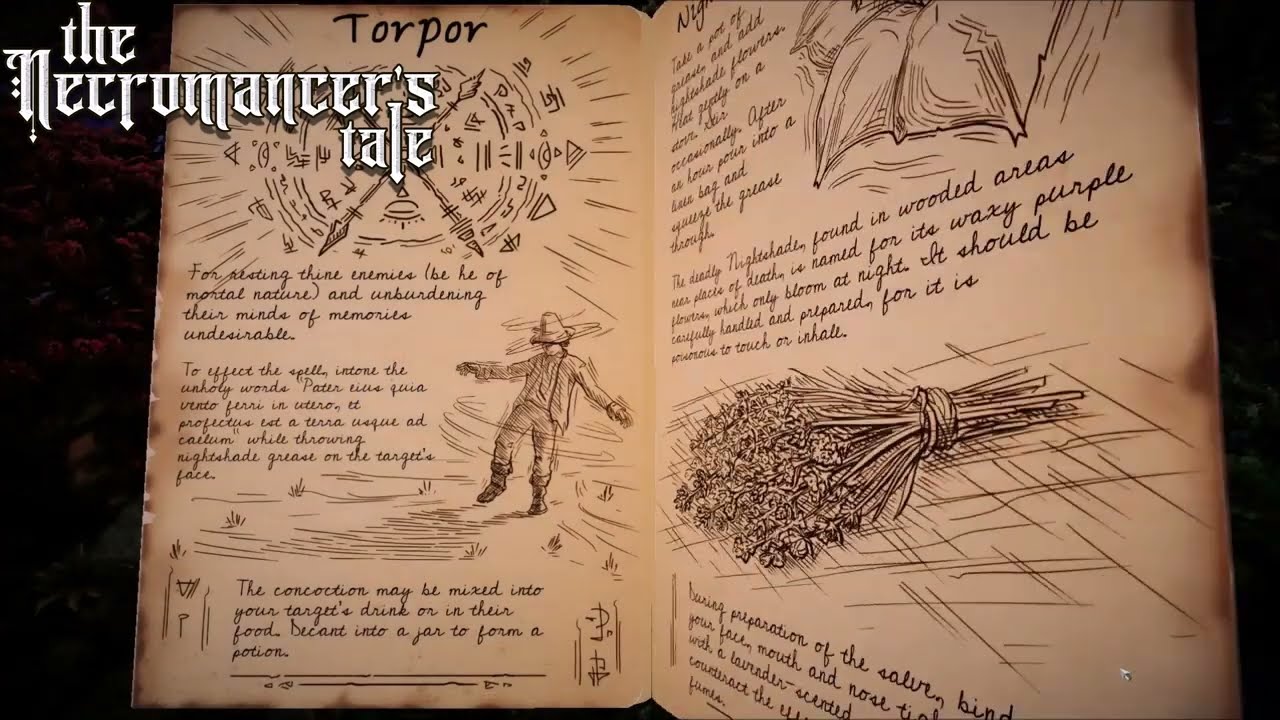 the
Necromancer's
tale
Torpor
For resting thine enemies (be he of
mortal nature) and unburdening
their minds of memories
undesirable.
To effect the spell, intone the
unholy words "Pater eius quia
vento ferri in utero, et
profectus est a terra usque ad
caelum" while throwing
nightshade grease on the target's
face.
The concoction may be mixed into
your target's drink or in their
food. Decant into a jar to form a
potion.
Take a pot of
grease, and add
nightshade flowers.
Heat gently on a
stove. Stir
occasionally. After
an hour pour into a
linen bag and
squeeze the grease
through.
The deadly Nightshade, found in wooded areas
near places of death, is named for its waxy purple
flowers, which only bloom at night. It should be
carefully handled and prepared, for it is
poisonous to touch or inhale.
During preparation of the salve, bind
your face, mouth and nose
with a lavender-scented
counteract the
fumes.